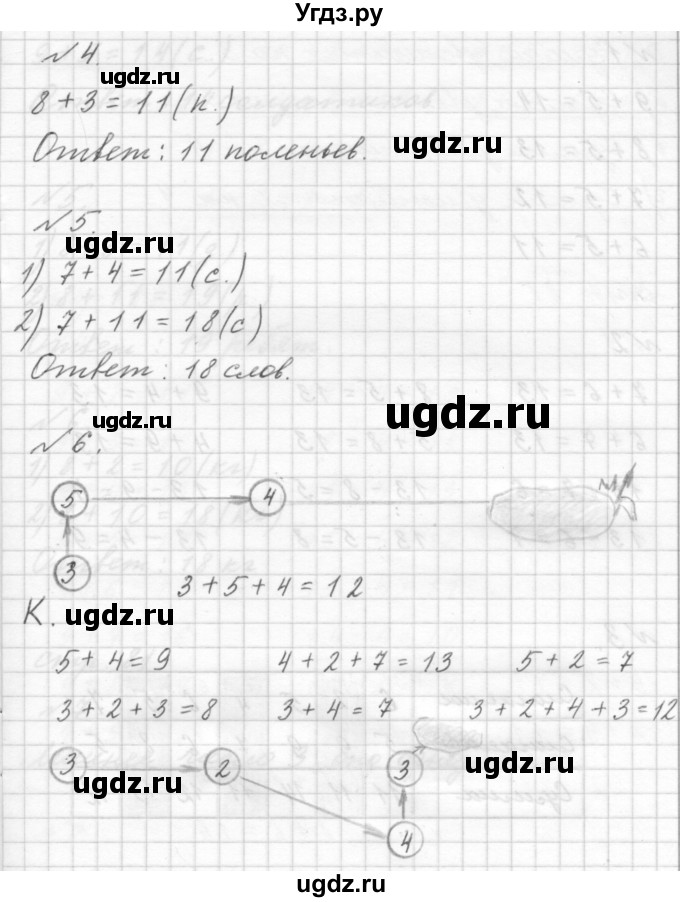 Угдз.ру
№4.
ugdz.ru
8 + 3 = 11 (п.)
ugdz.ru
Ответ: 11 поленьев.
№5.
ugdz.ru
1) 7 + 4 = 11 (с.)
2) 7 + 11 = 18 (с)
Ответ: 18 слов.
ugdz.ru
ugdz.ru
№6.
5 4
3
3 + 5 + 4 = 12
К.
ugdz.ru
5 + 4 = 9 4 + 2 + 7 = 13 5 + 2 = 7
3 + 2 + 3 = 8 3 + 4 = 7 3 + 2 + 4 + 3 = 12
3 2 3
ugdz.ru ugdz.ru
4
ugdz.ru